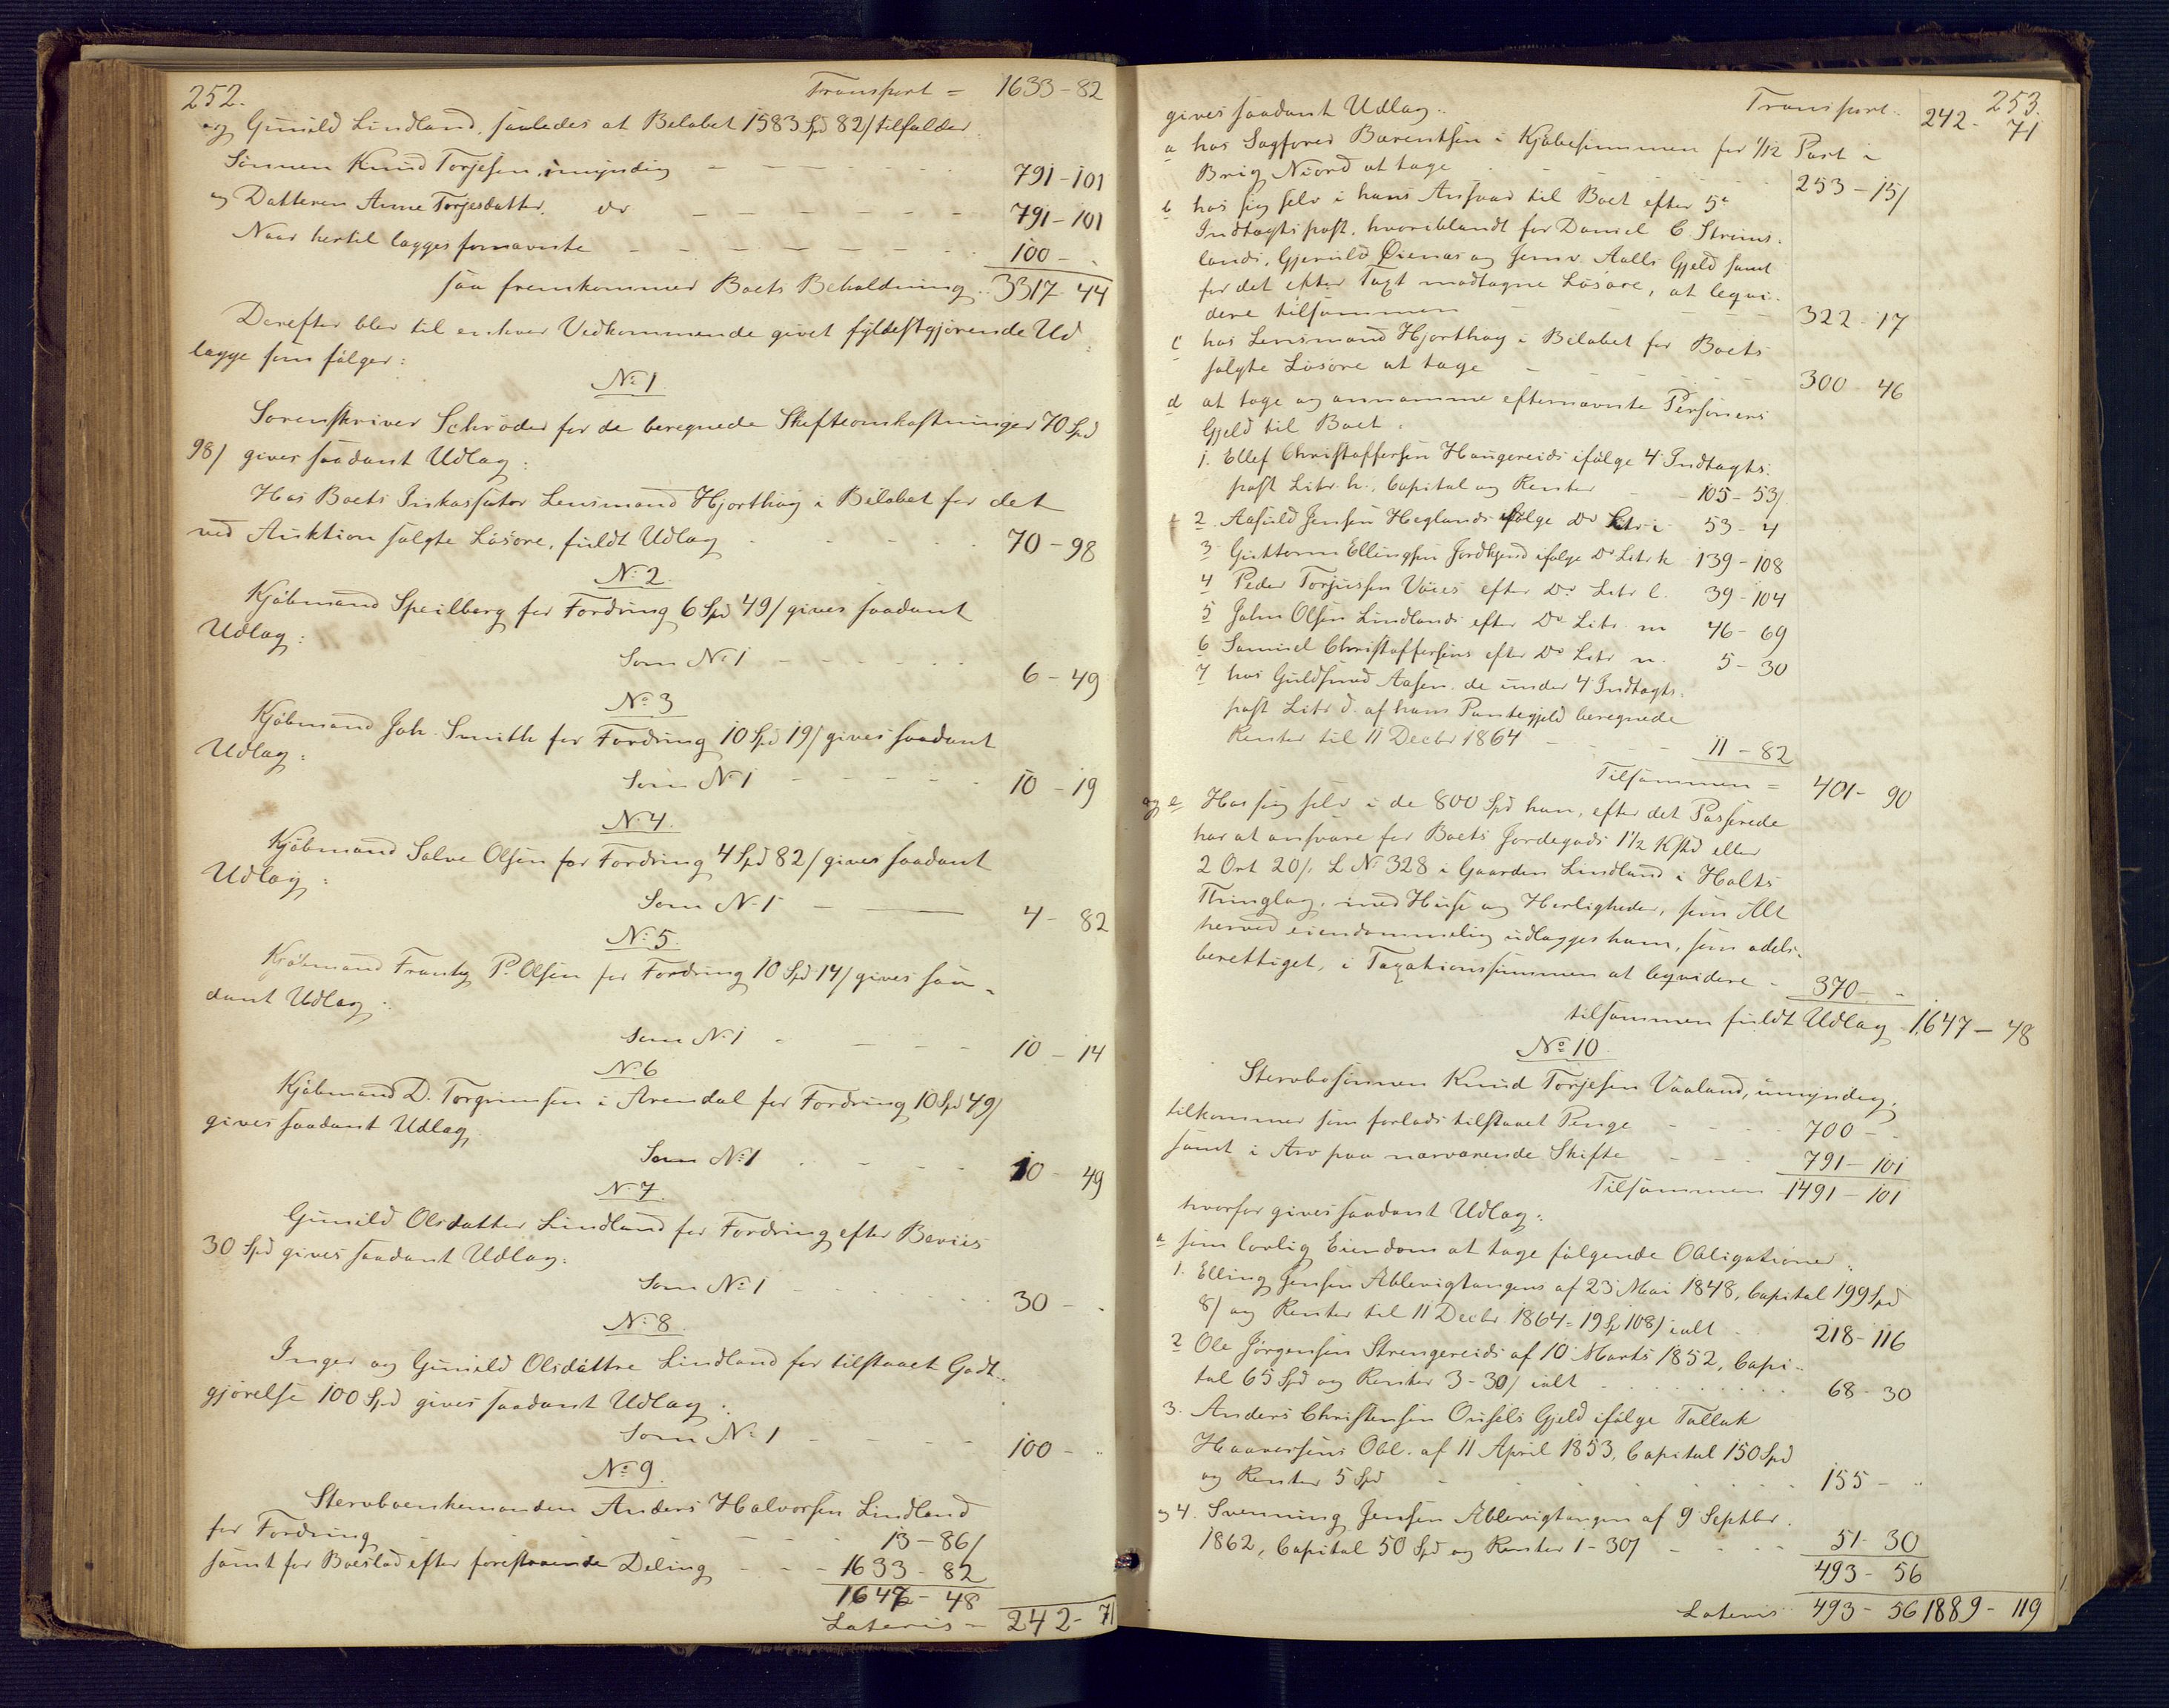 252.
Transport = 1633-82
og Gunild Lindland, saaledes at Beløbet 1583 Spd 82/ tilfalder
Sønnen Knud Torjesen, umyndig - - - 791-101
og Datteren Anne Torjesdatter, do - - - 791-101
Naar hertil lægges fornævnte - - - 100 - -
saa fremkommer Boets Beholdning .. 3317-44
Derefter blev til enhver Vedkommende givet fyldestgjørende Ud-
lægge som følger:
No 1.
Sorenskriver Schrøder for de beregnede Skifteomkostninger 70 Spd
98/ gives saadant Udlæg:
Hos Boets Inkassator Lensmand Hjorthøg i Beløbet for det
ved Auktion solgte Løsøre, fuldt Udlæg - - - 70-98
No 2.
Kjøbmand Speilberg for Fordring 6 Spd 49/ gives saadant
Udlæg:
Som No 1 - - - 6-49
No 3
Kjøbmand Joh. Smith for Fordring 10 Spd 19/ gives saadant
Udlæg:
Som No 1 - - - 10-19
No 4.
Kjøbmand Salve Olsen for Fordring 4 Spd 82/ gives saadant
Udlæg:
Som No 1 - - 4-82
No 5.
Kjøbmand Frantz P. Olsen for Fordring 10 Spd 14/ gives saa-
dant Udlæg:
Som No 1 - - - 10-14
No 6
Kjøbmand D. Torgrimsen i Arendal for Fordring 10 Spd 49/
gives saadant Udlæg
Som No 1 - - - 10-49
No 7.
Gunild Olsdatter Lindland for Fordring efter Beviis
30 Spd gives saadant Udlæg:
Som No 1 - - - 30 - -
No 8.
Inger og Gunild Olsdøttre Lindland for tilstaaet Godt-
gjørelse 100 Spd gives saadant Udlæg:
Som No 1 - - - 100 - -
No 9.
Stervboenkemanden Anders Halvorsen Lindland
for Fordring - - - 13-86/
samt for Boeslod efter forestaaende Deling - - - 1633-82
1647-48
Lateris = 242-71
253.
Transport.. 242-71
gives saadant Udlæg..
a hos Sagfører Barentsen i Kjøbesummen for 1/12 Part i
Brig Niord at tage - - - 253-15/
b hos sig selv i hans Ansvar til Boet efter 5te
Indtægtspost, hvoriblandt for Daniel C. Strøms-
lands, Gjeruld Øienæs og Aalls Gjeld samt
for det efter Taxt modtagne Løsøre, at leqvi-
dere tilsammen - - - 322-17
c hos Lensmand Hjorthøg i Beløbet for Boets
solgte Løsøre at tage - - - 300-46
d at tage og annamme efternævnte Personers
Gjeld til Boet:
1. Ellef Christoffersen Haugereids ifølge 4 Indtægts-
post Litr. h., Capital og Renter - - 105-53/
2. Aasuld Jensen Heglands ifølge Do Litr i 53-4
3 Guttorm Ellingsen Jordkjend ifølge Do Litr k 139-108
4 Peder Torjussen Vøies efter Do Litr l. 39-104
5 John Olsen Lindlands efter Do Litr. m 46-69
6 Samuel Christoffersens efter Do Litr n. 5-30
7 hos Guldsmed Aasen, de under 4 Indtægts-
post Litr d. af hans Pantegjeld beregnede
Renter til 11 Decbr 1864 - - - 11-82
Tilsammen = 401-90
og e Hos sig selv i de 800 Spd han, efter det Passerede
har at ansvare for Boets Jordegods 1½ Kfld eller
2 Ort 20/. L No 328 i Gaarden Lindland i Holts
Thinglag, med Huse og Herligheder, som Alt
herved eiendommelig udlægges ham, som odels-
berettiget, i Taxationssummen at leqvidere - 370 - -
tilsammen fuldt Udlæg 1647-48
No 10
Stervbosønnen Knud Torjesen Vaaland, umyndig,
tilkommer som forlods tilstaaet Penge - - - 700 - -
samt i Arv paa nærværende Skifte - - - 791-101
Tilsammen 1491-101
hvorfor gives saadant Udlæg:
a som lovlig Eiendom at tage følgende Obligationer:
1. Elling Jensen Ablevigtangens af 23 Mai 1848, Capital 199 Spd
8/ og Renter til 11 Decbr 1864 = 19 Sp 108/ ialt - 218-116
2 Ole Jørgensen Strengereids af 10 Marts 1852, Capi-
tal 65 Spd og Renter 3-30/ ialt - - - 68-30
3. Anders Christensen Ousels Gjeld ifølge Tallak
Haaversens Obl. af 11 April 1853, Capital 150 Spd
og Renter 5 Spd - - - 155 - -
og 4. Svenning Jensen Ablevigtangen af 9 Septbr.
1862, Capital 50 Spd og Renter 1-30/ - - - 51-30
493-56
Lateris 493-56 1889-119